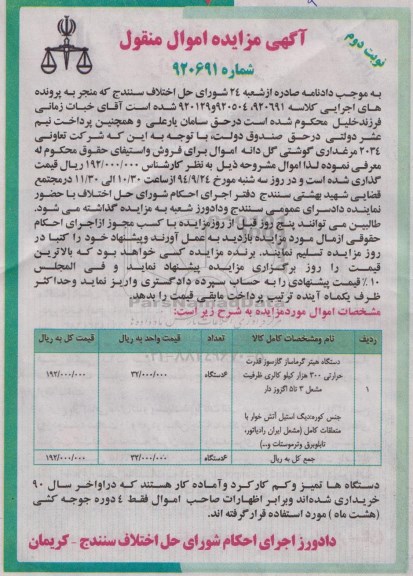 نوبت دوم
آگهی مزایده اموال منقول
شماره ۹۲۰۶۹۱
به موجب دادنامه صادره ازشعبه ۲۴ شورای حل اختلاف سنندج که منجر به پرونده
های اجرایی کلاسه ۹۲۰۶۹۱، ۹۲۰۵۰۴و۹۲۰۱۲۹ شده است آقای خبات زمانی
فرزندخلیل محکوم شده است درحق سامان یارعلی و همچنین پرداخت نیم
عشر دولتی درحق صندوق دولت، با توجه به این که شرکت تعاونی
۲۰۳۴ مرغداری گوشتی گل دانه اموال برای فروش واستیفای حقوق محکوم له
معرفی نموده لذا اموال مشروحه ذیل به نظر کارشناس ۱۹۲/۰۰۰/۰۰۰ ریال قیمت
گذاری شده است و در روز سه شنبه مورخ ۹۴/۹/۲۴ ازساعت ۱۰/۳۰ الی ۱۱/۳۰ درمجتمع
قضایی شهید بهشتی سنندج دفتر اجرای احکام شورای حل اختلاف با حضور
نماینده دادسرای عمومی سنندج ودادورز شعبه به مزایده گذاشته می شود.
طالبین می توانند پنج روز قبل از روزمزایده با کسب مجوز ازاجرای احکام
حقوقی ازمال مورد مزایده بازدید به عمل آورند وپیشنهاد خود را کتبا در
روز مزایده تسلیم نمایند. برنده مزایده کسی خواهد بود که بالاترین
قیمت را روز برگزاری مزایده پیشنهاد نماید و فی المجلس
۱۰٪ قیمت پیشنهادی را به حساب سپرده دادگستری واریز نماید وحداکثر
ظرف یکماه آینده ترتیب پرداخت مابقی قیمت را بدهد.
مشخصات اموال موردمزایده به شرح زیر است:
ردیف نام ومشخصات کامل کالا تعداد قیمت واحد به ریال قیمت کل به ریال
۱ دستگاه هیتر گرماساز گازسوز قدرت ۶دستگاه ۳۲/۰۰۰/۰۰۰ ۱۹۲/۰۰۰/۰۰۰
حرارتی ۳۰۰ هزار کیلو کالری ظرفیت
مشعل ۳ تا۵ اگزوز دار
جنس کوره:دیگ استیل آتش خوار با
متعلقات کامل (مشعل ایران رادیاتور،
تابلوبرق وترموستات و...)
جمع کل به ریال ۶دستگاه ۳۲/۰۰۰/۰۰۰ ۱۹۲/۰۰۰/۰۰۰
دستگاه ها تمیز وکم کارکرد وآماده کار هستند که دراواخر سال ۹۰
خریداری شده‌اند وبرابر اظهارات صاحب اموال فقط ۴ دوره جوجه کشی
(هشت ماه ) مورد استفاده قرارگرفته اند.
دادورز اجرای احکام شورای حل اختلاف سنندج - کریمان